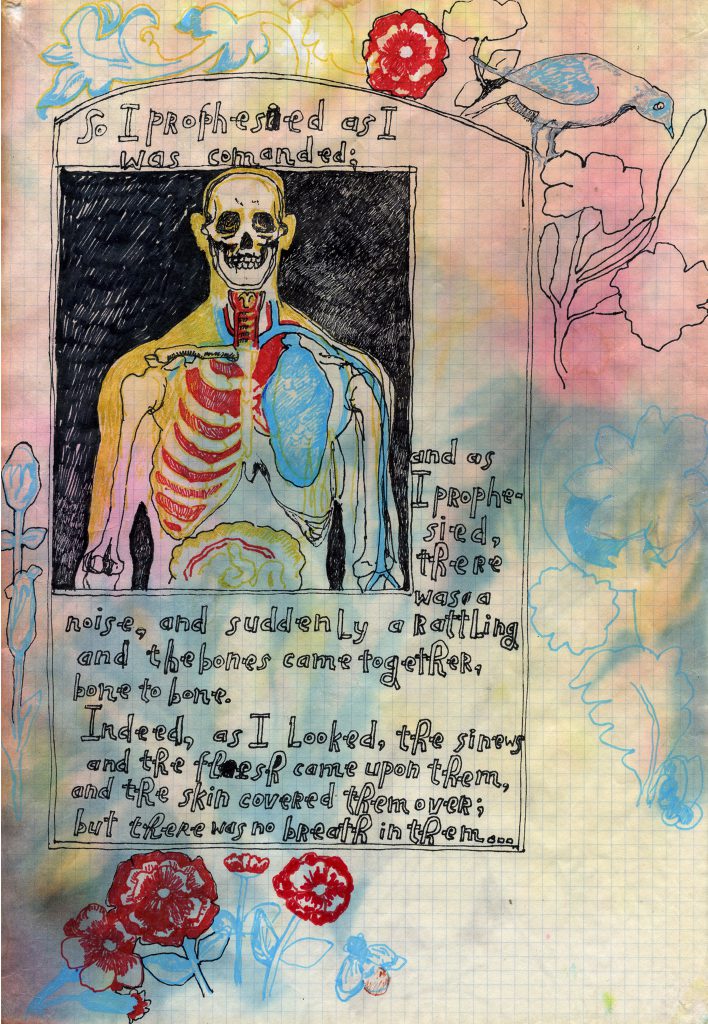 So I prophesied as I
was comanded;
and as
I prophe-
sied,
there
was a
noise, and suddenly a rattling
and the bones came together,
bone to bone.
Indeed, as I looked, the sinews
and the flesh came upon them,
and the skin covered them over;
but there was no breath in them...